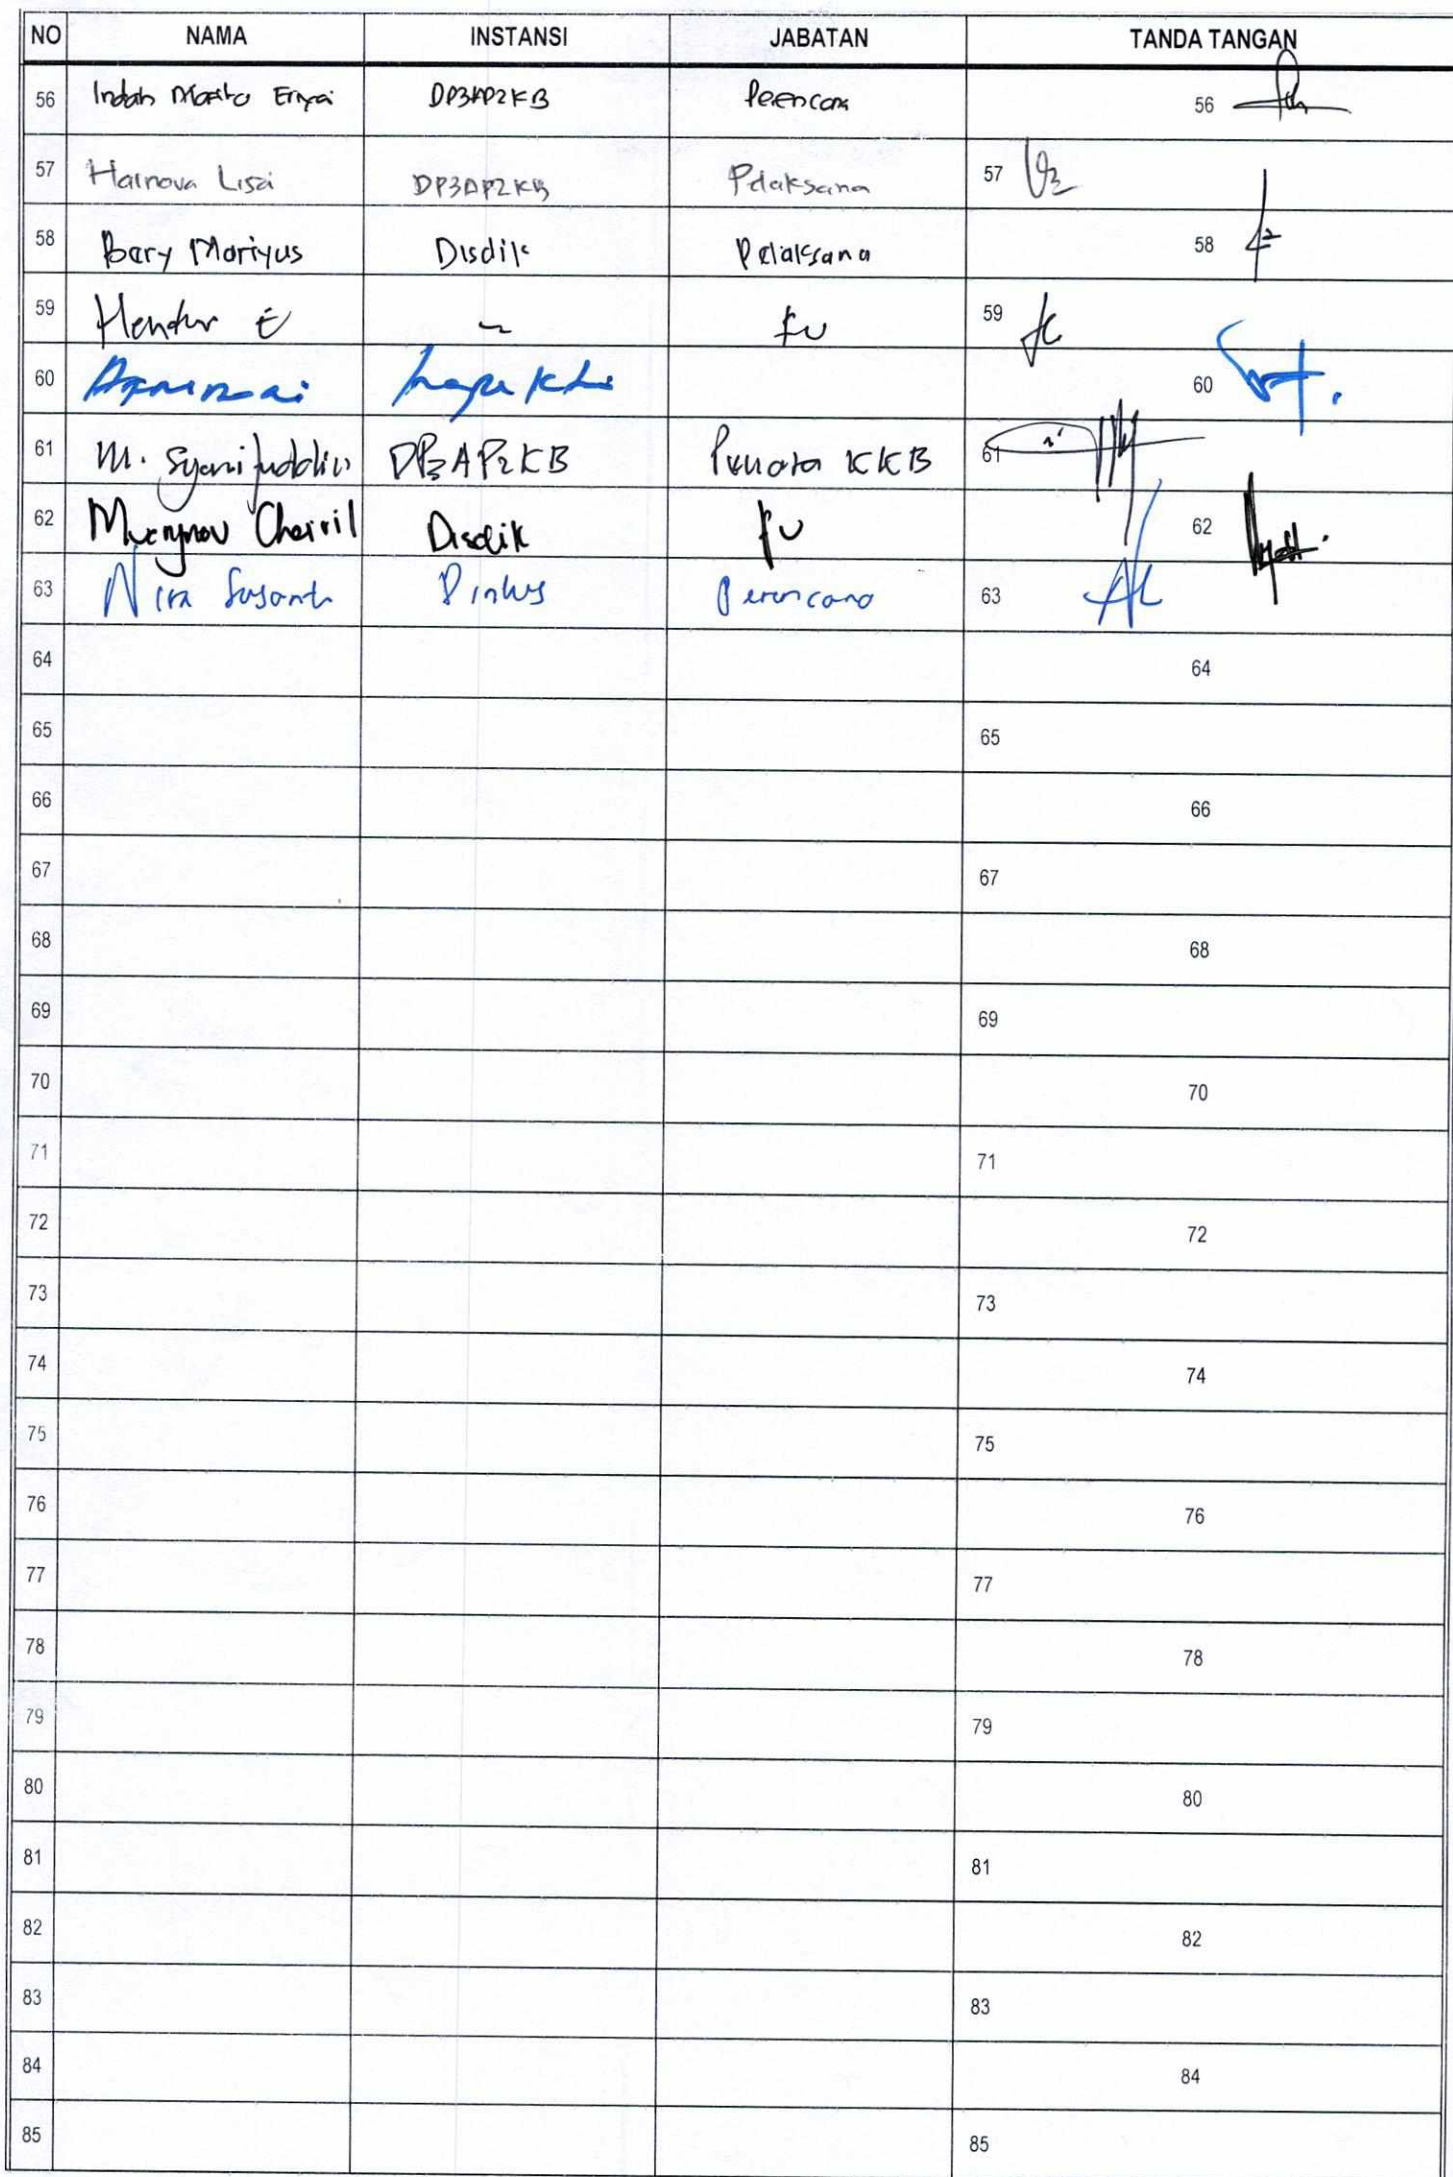 NO NAMA INSTANSI JABATAN TANDA TANGAN
56 Indah DP3AP2KB Perencana 56
57 Hainova Lisa DP3AP2KB Pelaksana 57
58 Bery Mariyus Disdik Pelaksana 58
59 Hendur E ~ fu 59
60 60
61 M. Syarifuddin DP3AP2KB Penata KKB 61
62 Chairil Disdik fu 62
63 Nira Susanti Dinkes Perencana 63
64 64
65 65
66 66
67 67
68 68
69 69
70 70
71 71
72 72
73 73
74 74
75 75
76 76
77 77
78 78
79 79
80 80
81 81
82 82
83 83
84 84
85 85